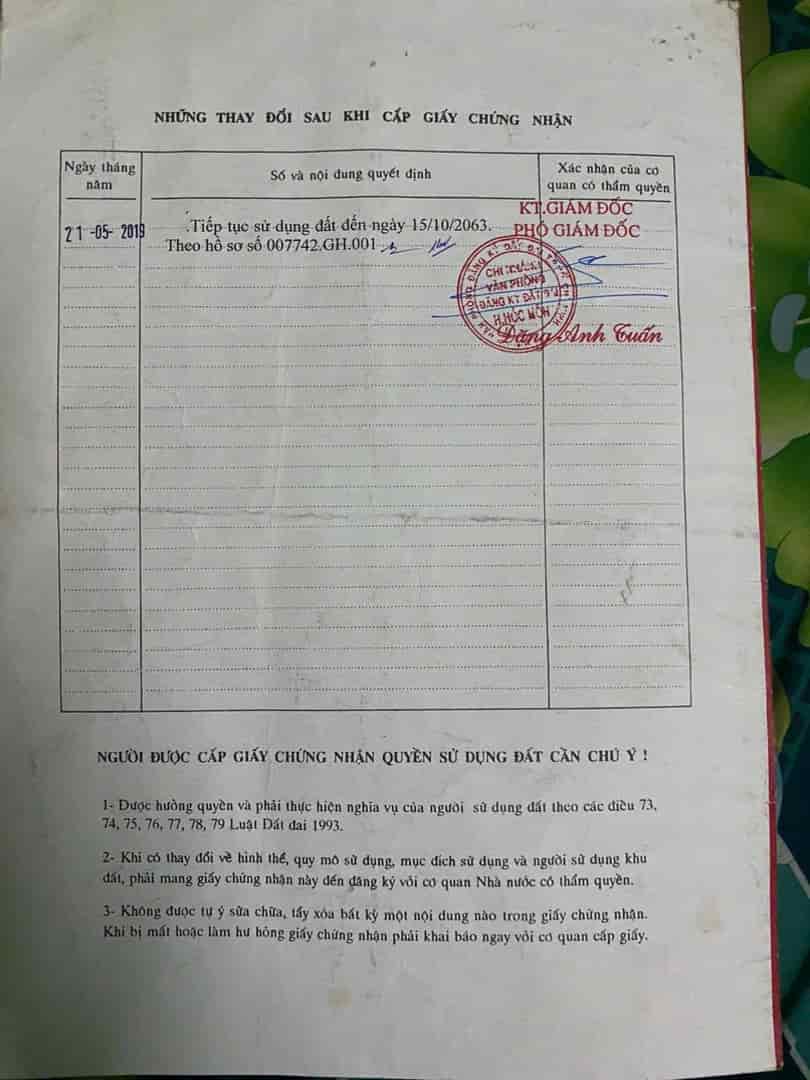 NHỮNG THAY ĐỔI SAU KHI CẤP GIẤY CHỨNG NHẬN
Ngày tháng năm
Số và nội dung quyết định
Xác nhận của cơ quan có thẩm quyền
21 -05- 2019
Tiếp tục sử dụng đất đến ngày 15/10/2063.
Theo hồ sơ số 007742.GH.001
KT.GIÁM ĐỐC
PHÓ GIÁM ĐỐC
CHI NHÁNH
VĂN PHÒNG
ĐĂNG KÝ ĐẤT ĐAI
H.HÓC MÔN
Đặng Anh Tuấn
NGƯỜI ĐƯỢC CẤP GIẤY CHỨNG NHẬN QUYỀN SỬ DỤNG ĐẤT CẦN CHÚ Ý !
1- Được hưởng quyền và phải thực hiện nghĩa vụ của người sử dụng đất theo các điều 73,
74, 75, 76, 77, 78, 79 Luật Đất đai 1993.
2- Khi có thay đổi về hình thể, quy mô sử dụng, mục đích sử dụng và người sử dụng khu
đất, phải mang giấy chứng nhận này đến đăng ký với cơ quan Nhà nước có thẩm quyền.
3- Không được tự ý sữa chữa, tẩy xóa bất kỳ một nội dung nào trong giấy chứng nhận.
Khi bị mất hoặc làm hư hỏng giấy chứng nhận phải khai báo ngay với cơ quan cấp giấy.